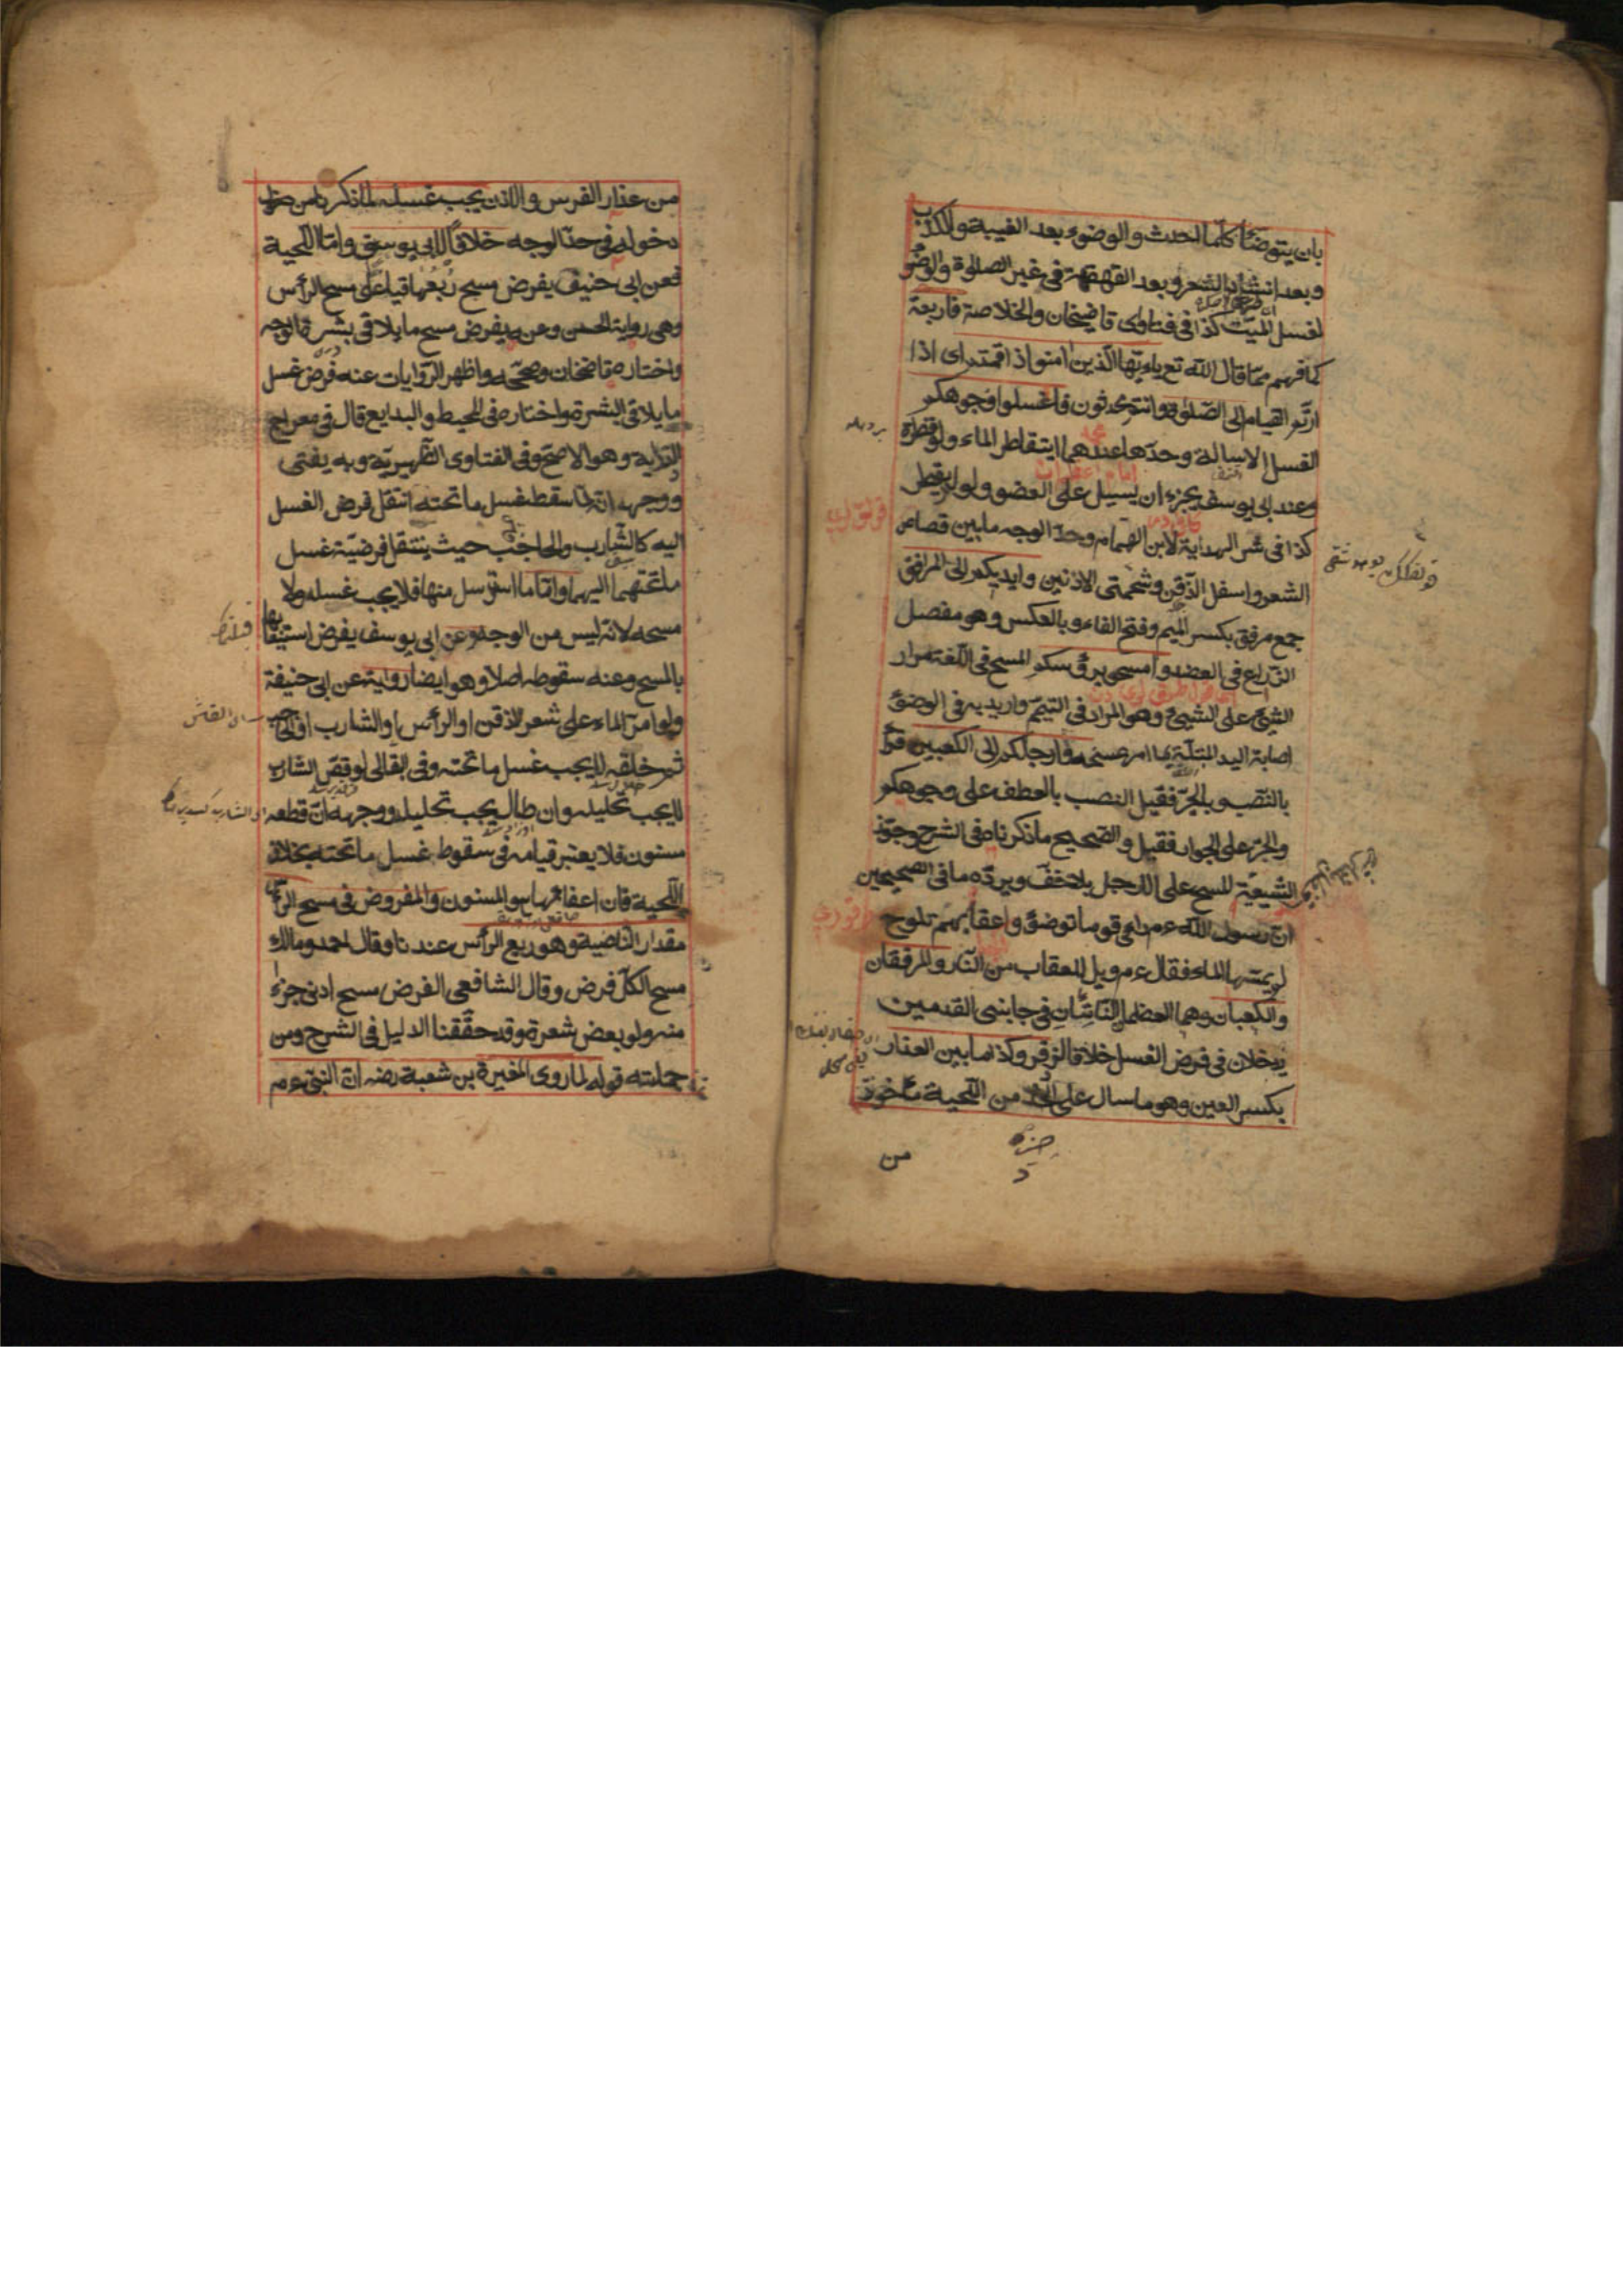 بان يتوضأ كلما احدث والوضوء بعد الغيبة والكذب
وبعد انشاد الشعر وبعد القهقهة في غير الصلوة والوضو
لغسل الميت كذا في فتاوى قاضيخان والخلاصة فاربعة
كما فهم مما قال الله تع ياءيها الذين امنوا اذا قمتم اى اذا
اردتم القيام الى الصلوة وانتم محدثون فاغسلوا وجوهكم
الغسل الاسالة وحدها عندهما ان يتقاطر الماء ولو قطرة
وعند ابى يوسف يجزء ان يسيل على العضو ولو لم يقطر
كذا في شرح الهداية لابن الهمام وحد الوجه ما بين قصاص
الشعر واسفل الذقن وشحمتى الاذنين وايديكم الى المرافق
جمع مرفق بكسر الميم وفتح الفاء وبالعكس وهو مفصل
الذراع في العضد وامسحوا برؤسكم المسح في اللغة امرار
الشئ على الشئ وهو المراد في التيمم واريد به في الوضوء
اصابة اليد المبتلة بما امر بمسحه وارجلكم الى الكعبين قرأ
بالنصب وبالجر فقيل النصب بالعطف على وجوهكم
والجر على الجوار فقيل والصحيح ما ذكرناه في الشرح وجوز
الشيعة المسح على الرجل بلا خف ويرده ما في الصحيحين
ان رسول الله عم راى قوما توضؤ واعقابهم تلوح
لم يمسها الماء فقال عم ويل للعقاب من النار والمرفقان
والكعبان وهما العظمان الناتئان في جانبى القدمين
يدخلان في فرض الغسل خلافا لزفر وكذا ما بين العذار
بكسر العين وهو ما سال على الخد من اللحية مأخوذ
من
من عذار الفرس والاذن يجب غسله لما ذكرنا من
دخوله في حد الوجه خلافا لابى يوسف واما اللحية
فعن ابى حنيفة يفرض مسح ربعها قياسا على مسح الرأس
وهى رواية الحسن وعنه يفرض مسح ما يلاقى بشرة الوجه
واختاره قاضخان وصححه واظهر الروايات عنه فرض غسل
ما يلاقى البشرة واختاره في المحيط والبدايع قال في معراج
الدراية وهو الاصح وفى الفتاوى الظهيرية وبه يفتى
ووجهه انه لما سقط غسل ما تحته انتقل فرض الغسل
اليه كالشارب والحاجب حيث ينتقل فرضية غسل
ما تحتهما اليهما واما ما استرسل منها فلا يجب غسله ولا
مسحه لانه ليس من الوجه وعن ابى يوسف يفرض استيعابها
بالمسح وعنه سقوطه اصلا وهو ايضا رواية عن ابى حنيفة
ولو امر الماء على شعر الذقن او الرأس او الشارب او الحاجب
ثم حلقه لا يجب غسل ما تحته وفى البقالى لو قص الشارب
لا يجب تخليله وان طال يجب تخليله ووجهه ان قطعه
مسنون فلا يعتبر قيامه في سقوط غسل ما تحته بخلاف
اللحية فان اعفاءها هو المسنون والمفروض في مسح الرأس
مقدار الناصية وهو ربع الرأس عندنا وقال احمد ومالك
مسح الكل فرض وقال الشافعى الفرض مسح ادنى جزء
منه ولو بعض شعرة وقد حققنا الدليل في الشرح ومن
جملته قوله لما روى المغيرة بن شعبة رضه ان النبى عم